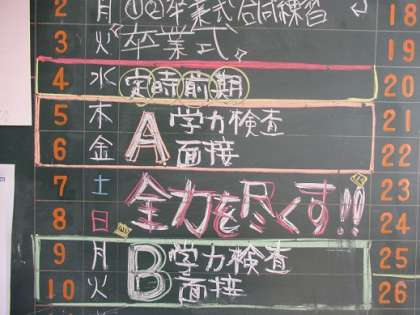 2 月 ①②卒業式合同練習 18
3 火 『卒業式』 19
4 水 定時前期 20
5 木 A 学力検査 21
6 金 面接 22
7 土 全力を尽くす!! 23
8 日 24
9 月 B 学力検査 25
10 火 面接 26